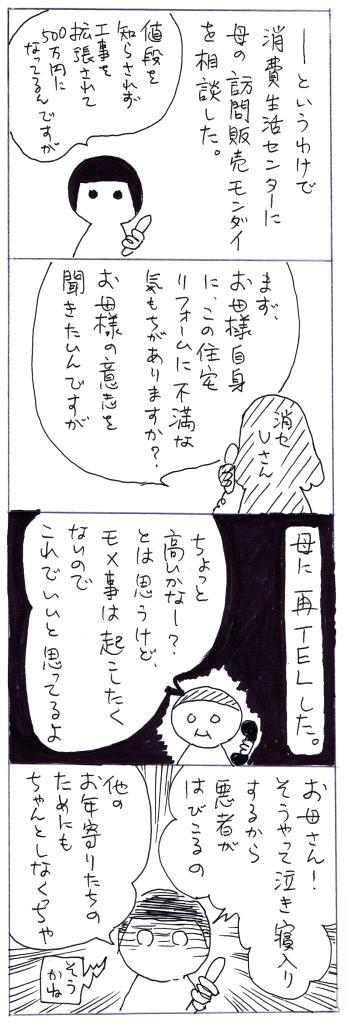 ——というわけで
消費生活センターに
母の訪問販売モンダイ
を相談した。
値段を
知らされず
工事を
拡張されて
500万円に
なってるんですが
まず、
お母様自身
に、この住宅
リフォームに不満な
気もちがありますか？
お母様の意志を
聞きたいんですが
消セ
Uさん
母に再TELした。
ちょっと
高いかなー？
とは思うけど、
モメ事は起こしたく
ないので
これでいいと思ってるよ
お母さん！
そうやって泣き寝入り
するから
悪者が
はびこるの
他の
お年寄りたちの
ためにも
ちゃんとしなくっちゃ
そう
かね